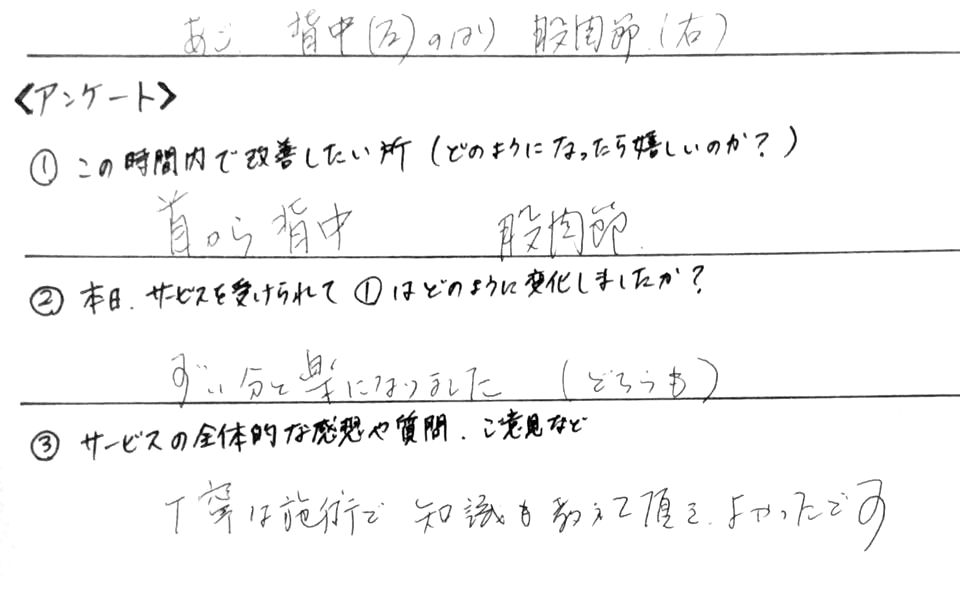 あご 背中(右)のはり 股関節(右)
<アンケート>
① この時間内で改善したい所(どのようになったら嬉しいのか?)
首から背中 股関節
② 本日、サービスを受けられて①はどのように変化しましたか?
ずい分と楽になりました (どちらも)
③ サービスの全体的な感想や質問、ご意見など
丁寧な施術で 知識も教えて頂き、よかったです